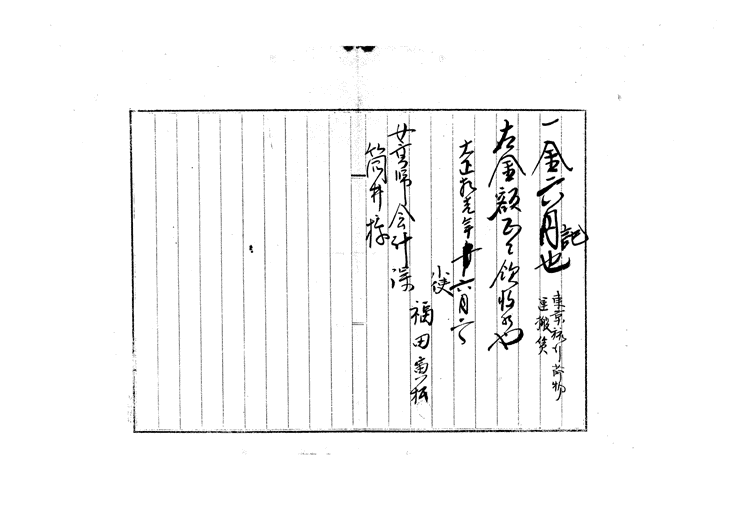 記
一金六円也
東京行荷物
運搬賃
右金額正ニ領収候也
大正元年十六月
小使
福田寅松
女高師会計課
筒井様